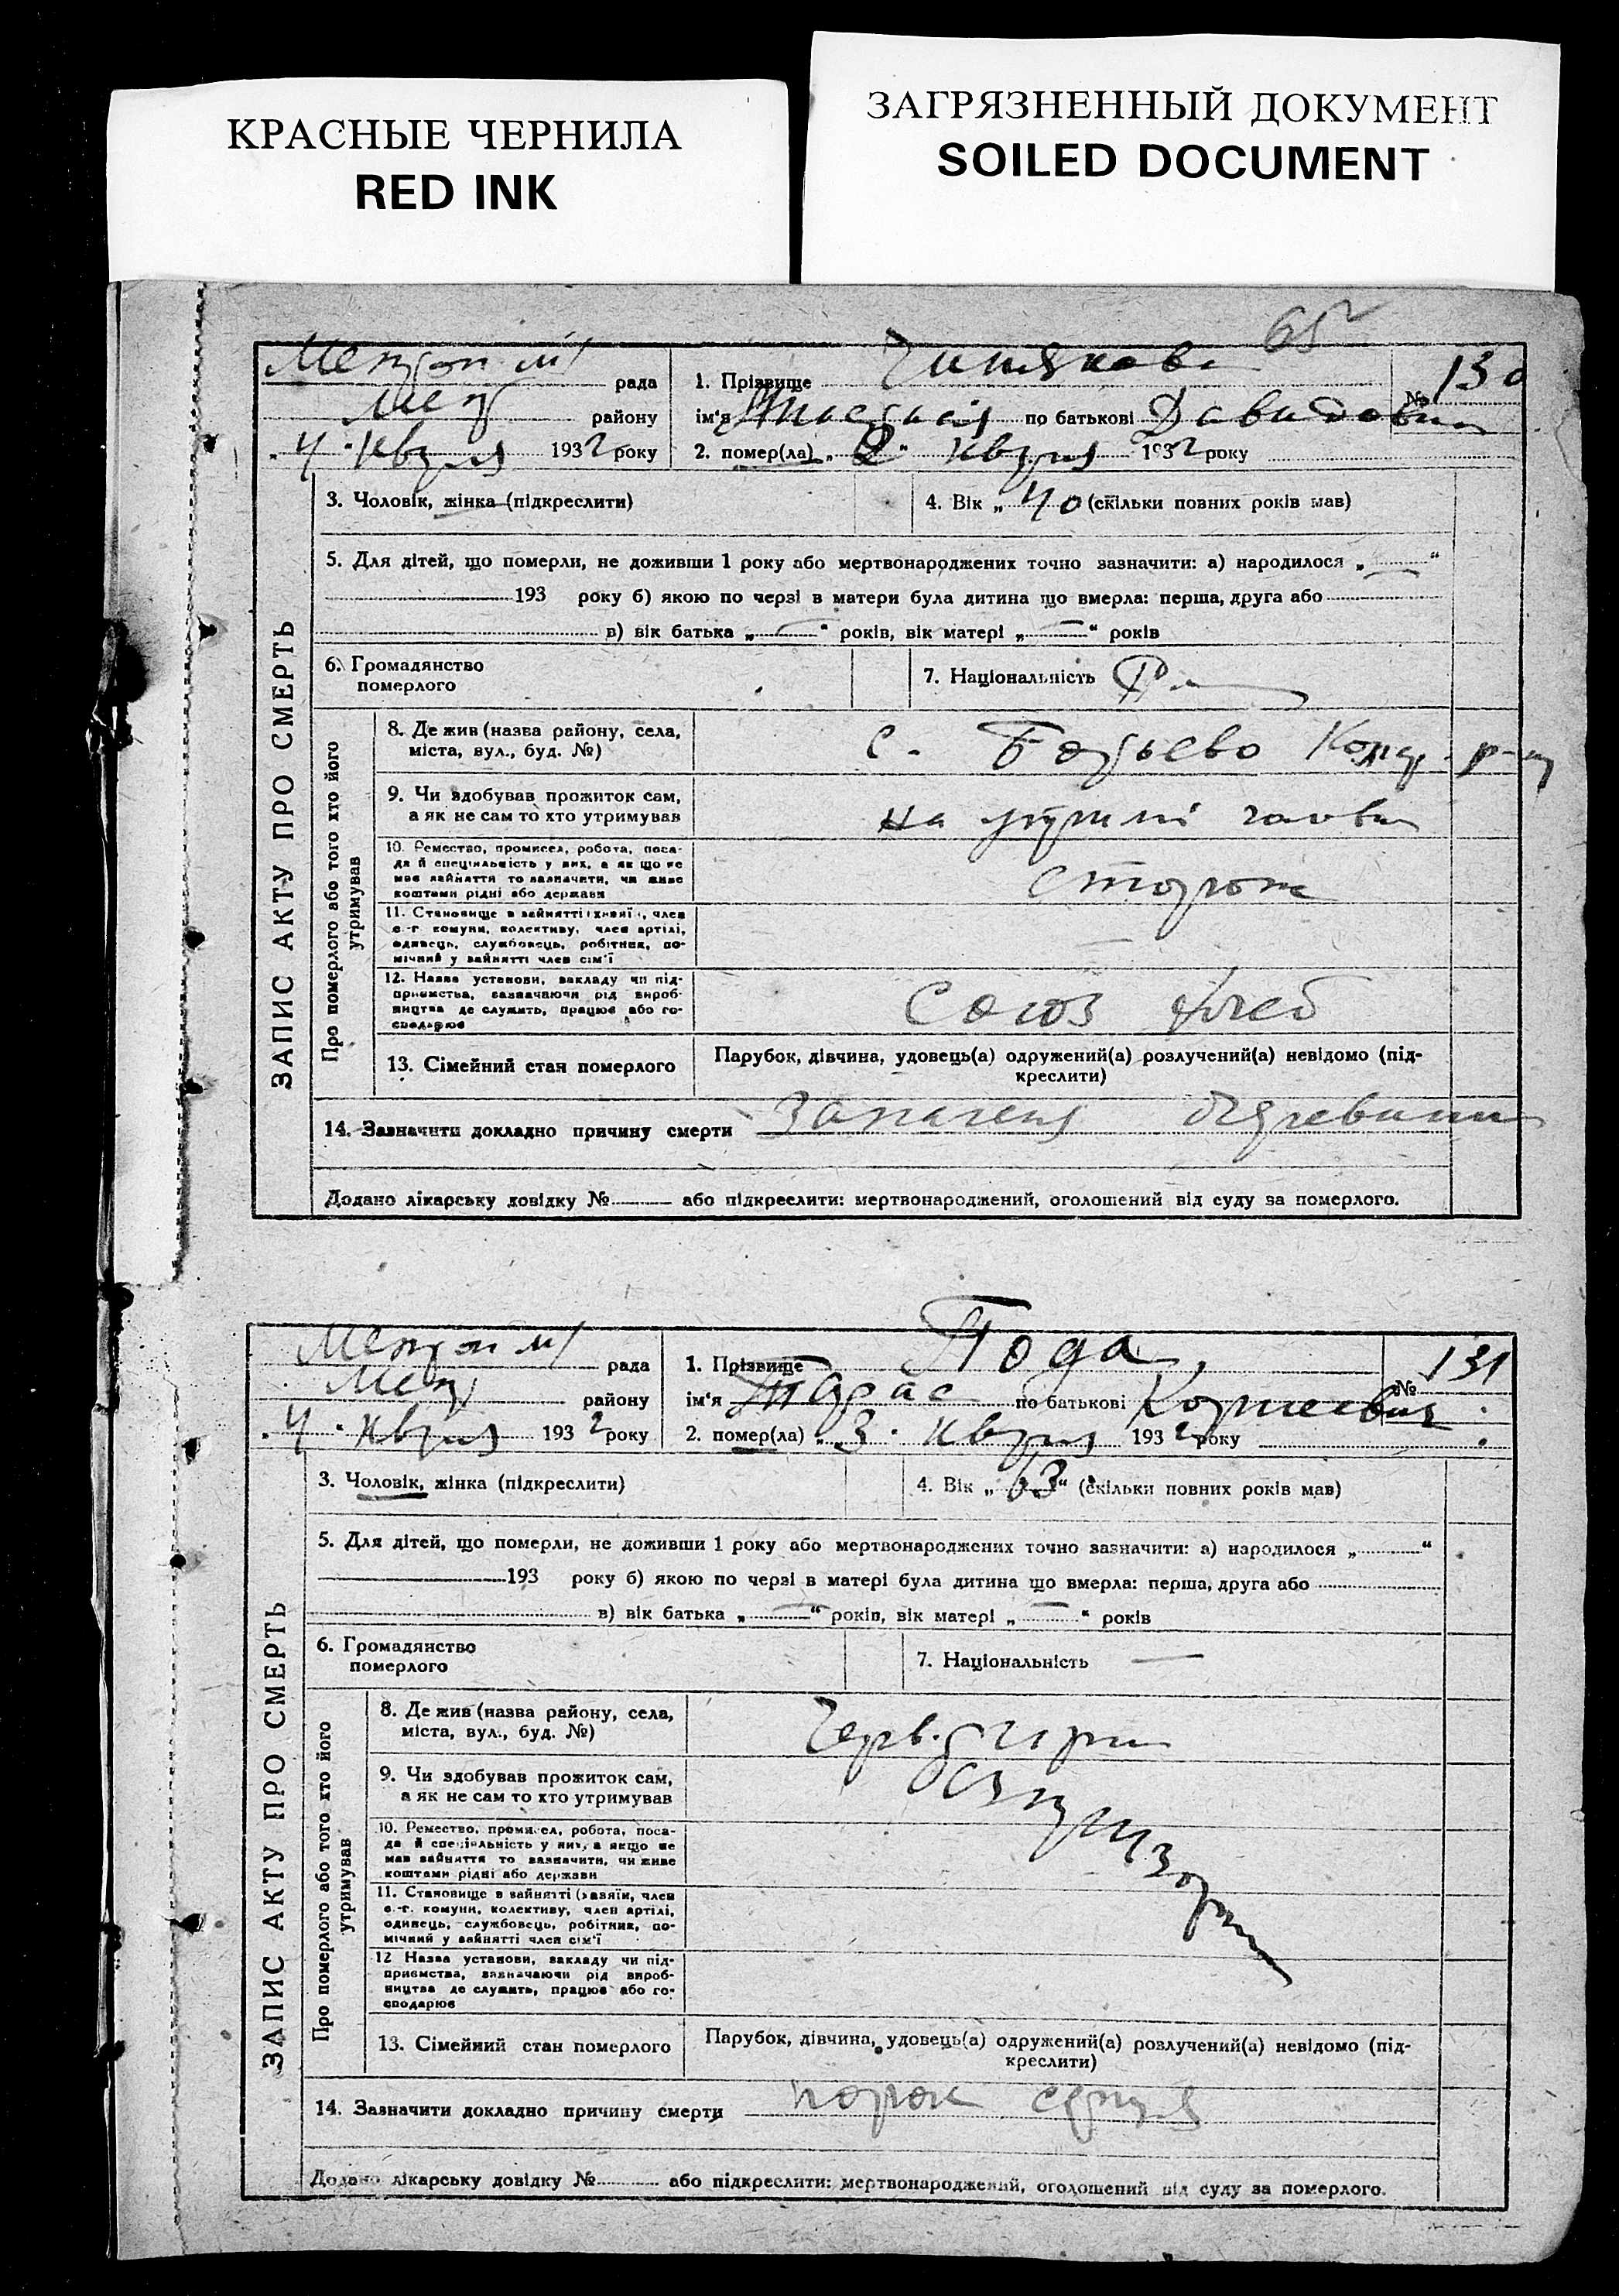 КРАСНЫЕ ЧЕРНИЛА
RED INK
ЗАГРЯЗНЕННЫЙ ДОКУМЕНТ
SOILED DOCUMENT
65
ЗАПИС АКТУ ПРО СМЕРТЬ
рада
району
4 · 1932 року
1. Прізвище
№ 130
ім'я по батькові Давидовна
2. помер(ла) „2" 1932 року
3. Чоловік, жінка (підкреслити)
4. Вік „40 (скільки повних років мав)
5. Для дітей, що померли, не доживши 1 року або мертвонароджених точно зазначити: а) народилося „ — "
193 року б) якою по черзі в матери була дитина що вмерла: перша, друга або
в) вік батька „ — " років, вік матері „ — " років
6. Громадянство
померлого
7. Національність
Про померлого або того хто його
утримував
8. Де жив (назва району, села,
міста, вул., буд. №)
с.
9. Чи здобував прожиток сам,
а як не сам то хто утримував
на
10. Ремество, промисел, робота, поса-
да й спеціяльність у них, а як що не
мав зайняття то зазначити, чи живе
коштами рідні або держави
сторож
11. Становище в зайнятті (хазяїн, член
с.-г. комуни, колективу, член артілі,
одинець, службовець, робітник, по-
мічний у зайнятті член сім'ї
12. Назва установи, закладу чи під-
приємства, зазначаючи рід вироб-
ництва де служить, працює або го-
сподарює
Союз хлеб
13. Сімейний стан померлого
Парубок, дівчина, удовець(а) одружений(а) розлучений(а) невідомо (під-
креслити)
14. Зазначити докладно причину смерти
Додано лікарську довідку № або підкреслити: мертвонароджений, оголошений від суду за померлого.
ЗАПИС АКТУ ПРО СМЕРТЬ
рада
району
4 · 1932 року
1. Прізвище Пода
№ 131
ім'я Тарас по батькові
2. помер(ла) „3 · 1932 року
3. Чоловік, жінка (підкреслити)
4. Вік „63" (скільки повних років мав)
5. Для дітей, що померли, не доживши 1 року або мертвонароджених точно зазначити: а) народилося „ "
193 року б) якою по черзі в матері була дитина що вмерла: перша, друга або
в) вік батька „ — " років, вік матері „ — " років
6. Громадянство
померлого
7. Національність —
Про померлого або того хто його
утримував
8. Де жив (назва району, села,
міста, вул., буд. №)
9. Чи здобував прожиток сам,
а як не сам то хто утримував
10. Ремество, промисел, робота, поса-
да й спеціяльність у них, а якщо не
мав зайняття то зазначити, чи живе
коштами рідні або держави
11. Становище в зайнятті (хазяїн, член
с.-г. комуни, колективу, член артілі,
одинець, службовець, робітник, по-
мічний у зайнятті член сім'ї
12 Назва установи, закладу чи під-
приємства, зазначаючи рід вироб-
ництва де служить, працює або го-
сподарює
13. Сімейний стан померлого
Парубок, дівчина, удовець(а) одружений(а) розлучений(а) невідомо (під-
креслити)
14. Зазначити докладно причину смерти порок серця
Додано лікарську довідку № або підкреслити: мертвонароджений, оголошений від суду за померлого.